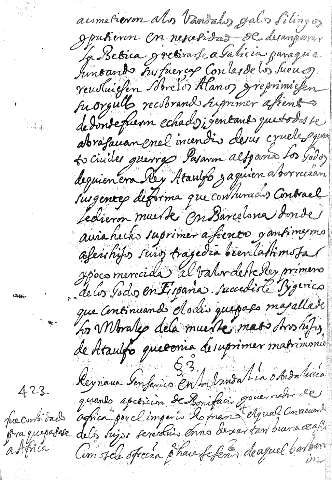 acometieron a los Vandalos y a los Silingos
y pusieron en necesidad de desamparar
la Betica y retirarse a Galicia para que a
juntando sus fuerças con las de los Suevos
revolviesen sobre los Alanos y reprimiesen
su orgullo recobrando su primer asiento
de donde fueron echados; y entando que todos se
abrasavan en el incendio de sus crueles
civiles guerras Pasaron a España los Godos
de quien era Rey Ataulfo y a quien aborrecian
sus gentes de forma que conjurados contra el
le dieron muerte en Barcelona donde
avia hecho su primer asiento y an mesmo
a seis hijos suios tragedia bien lastimosa
y poco merecida al valor deste Rey primero
de los Godos en España. sucediole Sygerico
que continuando el odio que paso mas alla de
los Umbrales de la muerte mato otros hijos
de Ataulfo que tenia de su primer matrimonio
§ 3
Reynava Genserico en la Vandalia o Andalucia
quando a peticion de Bonifacio governador de
Africa por el imperio Romano
de los suyos
423.
fue conbidado
para que pasase
a Africa
de aquel barbaro